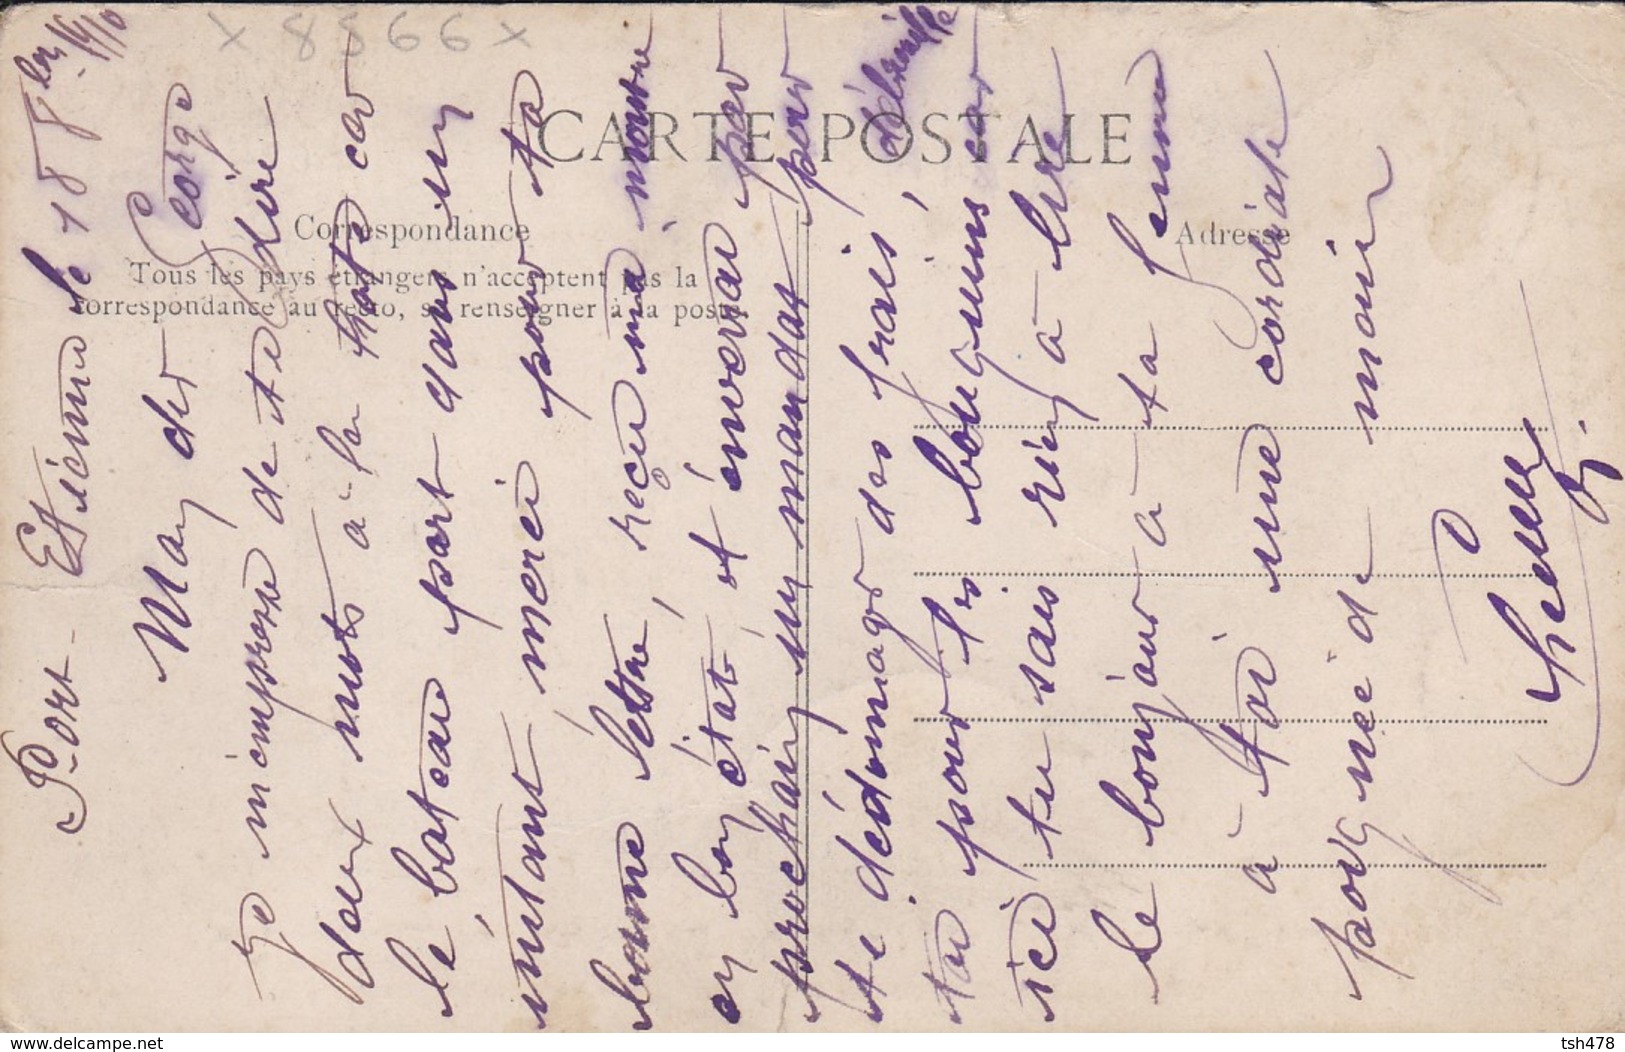 x 8866 x
CARTE POSTALE
Correspondance
Adresse
Tous les pays étrangers n'acceptent pas la
correspondance au recto, se renseigner à la poste
Port-Etienne le 18 8bre 1910
Mon cher George
Je m'empresse de te dire
deux mots à la hate car
le bateau part dans un
instant, merci pour ta
bonne lettre, reçue ma montre
en bon état, et enverrai par
prochain un mandat pour
te dédomager des frais, débrouille
toi pour les bouquins car
ici tu sais rien à lire
le bonjour à ta femme
à toi une cordiale
poignée de main
www.delcampe.net
tsh478